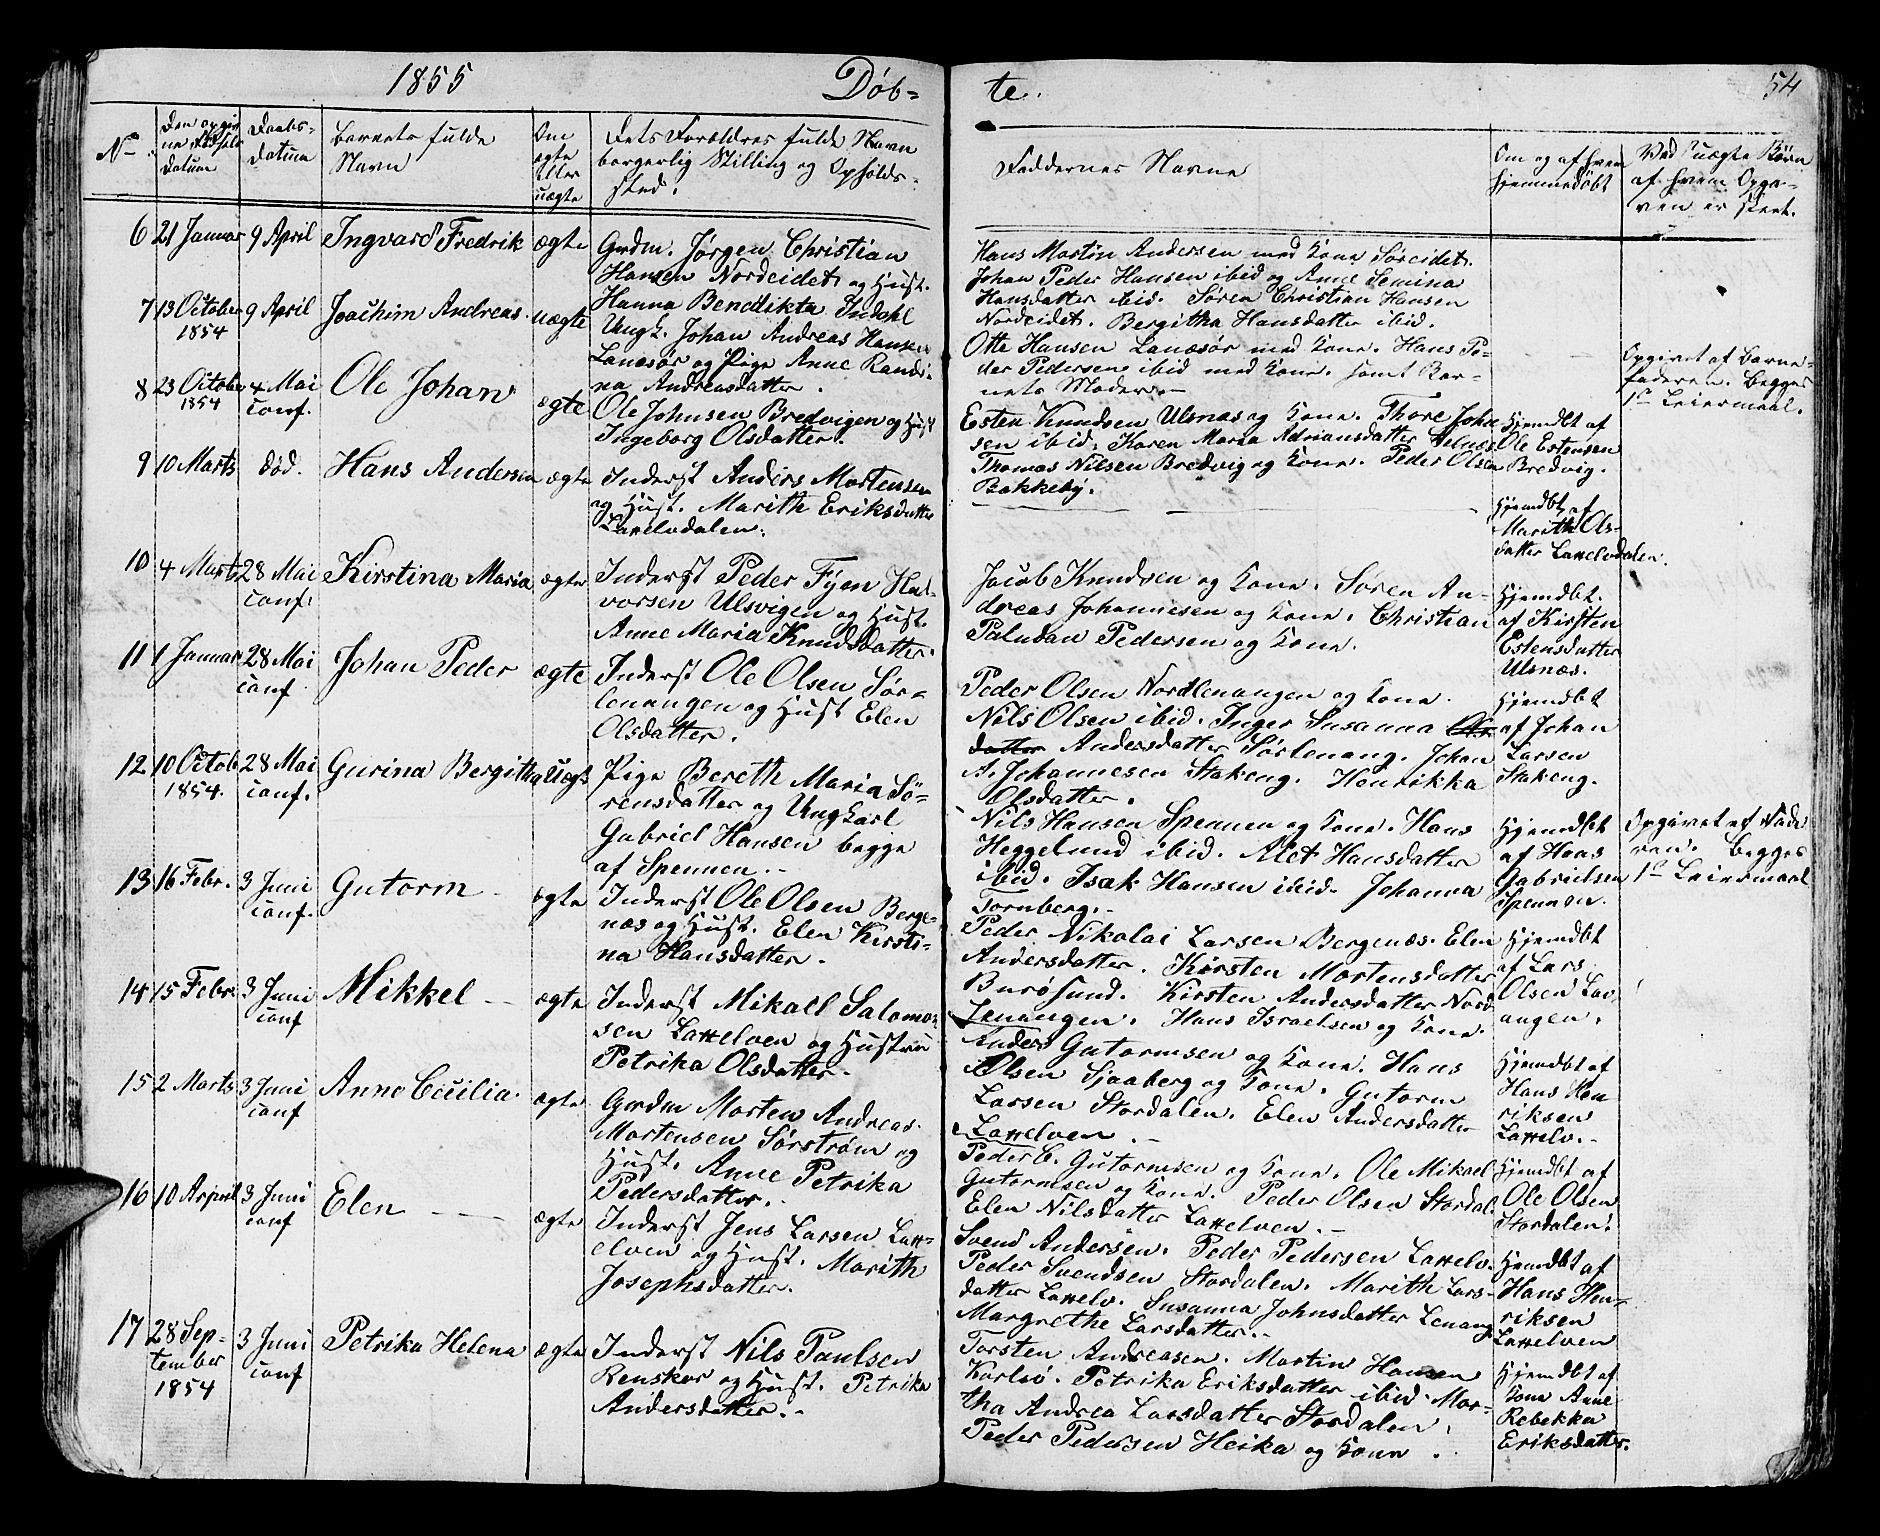 1855 Døb-
te.
54
No
Den opgiv
ne Fødsels
Datum
Daabs-
Datum
Barnets fulde
Navn
Om
ægte
eller
uægte
Dets Forældres fulde Navn
borgerlig Stilling og Opholds-
sted.
Faddernes Navne
Om og af hvem
hjemmedøbt
Ved uægte Børn
af hvem Opga-
ven er skeet.
6 21 Januar 9 April Ingvard Fredrik ægte
Grdm. Jørgen Christian
Hansen Nordeidet og Hust.
Hanna Benedikta Indahl
Hans Martin Andersen med Kone Søreidet.
Johan Peder Hansen ibid og Anne Semina
Hansdatter ibid. Søren Christian Hansen
Nordeidet. Bergitha Hansdatter ibid.
7 13 October 9 April Joachim Andreas. uægte
1854
Ungk. Johan Andreas Hansen
Lanesør og Pige Anne Randi-
na Andreasdatter.
Otte Hansen Lanesør med Kone. Hans Pe-
der Pedersen ibid med Kone. samt Bar-
nets Moder. —
Opgivet af Barne-
faderen. Begges
1ste Leiermaal.
8 23 October 4 Mai Ole Johan ægte
1854 conf.
Ole Johnsen Bredvigen og Hust
Ingeborg Olsdatter.
Esten Knudsen Ulsnæs og Kone. Thore John
sen ibid. Karen Maria Adriansdatter Ulsnæs
Thomas Nilsen Bredvig og Kone. Peder Olsen
Bakkeby.
Hjemdbt af
Ole Estensen
Bredvig.
9 10 Marts død. Hans Andersen ægte
Inderst Anders Mortensen
og Hust. Marith Eriksdatter
Lattelvdalen.
Hjemdbt af
Marith Ols-
datter Lattelvdalen.
10 4 Marts 28 Mai Kirstina Maria ægte
conf.
Inderst Peder Fyen Hal-
vorsen Ulsvigen og Hust.
Anne Maria Knudsdatter.
Jacob Knudsen og Kone. Søren An-
dreas Johannesen og Kone. Christian
Paludan Pedersen og Kone.
Hjemdbt.
af Kirsten
Estensdatter
Ulsnæs.
11 1 Januar 28 Mai Johan Peder ægte
conf.
Inderst Ole Olsen Sør-
lenangen og Hust Elen
Olsdatter.
Peder Olsen Nordlenangen og Kone.
Nils Olsen ibid. Inger Susanna Ols-
datter Andersdatter Sørlenang. Johan
A. Johannesen Stakeng. Henrikka
Olsdatter.
Hjemdbt
af Johan
Larsen
Stakeng.
12 10 Octob 28 Mai Gurina Bergitha Uægt
1854. conf.
Pige Bereth Maria Sö-
rensdatter og Ungkarl
Gabriel Hansen begge
af Spennen. -
Nils Hansen Spennen og Kone. Hans
Heggelund ibid. Alet Hansdatter
ibid. Isak Hansen ibid. Johanna
Tornberg. -
Hjemdbt
af Hans
Gabrielsen
Spennen.
Opgivet af Fade
ren. Begges
1ste Leiermaal
13 16 Febr. 3 Juni Gutorm - ægte
conf.
Inderst Ole Olsen Berge-
næs og Hust. Elen Kirsti-
na Hansdatter.
Peder Nikolai Larsen Bergenæs. Elen
Andersdatter. Kirsten Mortensdatter
Burøsund. Kirsten Andersdatter Nord
Lenangen. Hans Israelsen og Kone.
Hjemdbt
af Lars
Olsen Lav-
angen.
14 15 Febr. 3 Juni Mikkel - ægte
conf
Inderst Mikael Salomon-
sen Lattelven og Hustru
Petrika Olsdatter. -
Anders Gutormsen og Kone. Hans
Olsen Sjaaberg og Kone. Gutorm
Larsen Stordalen. Elen Andersdatter
Lattelven. -
Hjemdbt af
Hans Hen
riksen
Lattelv. -
15 2 Marts 3 Juni Anne Cecilia. ægte
conf
Grdm Morten Andreas
Mortensen Sørstrøm og
Hust. Anne Petrika
Pedersdatter. -
Peder C. Gutormsen og Kone. Ole Mikael
Gutormsen og Kone. Peder Olsen Stordal.
Elen Nilsdatter Lattelven. -
Hjemdbt af
Ole Olsen
Stordalen.
16 10 April 3 Juni Elen - ægte
conf
Inderst Jens Larsen Latt-
elven og Hust. Marith
Josephsdatter.
Svend Andersen. Peder Pedersen Lattelv.
Peder Svendsen Stordalen. Marith Lars-
datter Lattelv. Susanna Johnsdatter Lenang
Margrethe Larsdatter. -
Hjemdbt af
Hans Hen-
riksen
Lattelven
17 28 Sep- 3 Juni Petrika Helena ægte
tember conf
1854
Inderst Nils Paulsen
Renskar og Hust. Petrika
Andersdatter. -
Torsten Andreasen. Martin Hansen
Karlsø. Petrika Eriksdatter ibid. Mar-
tha Andrea Larsdatter Stordalen.
Peder Pedersen Heika og Kone.
Hjemdbt af
Kone Anne
Rebekka
Eriksdatter.